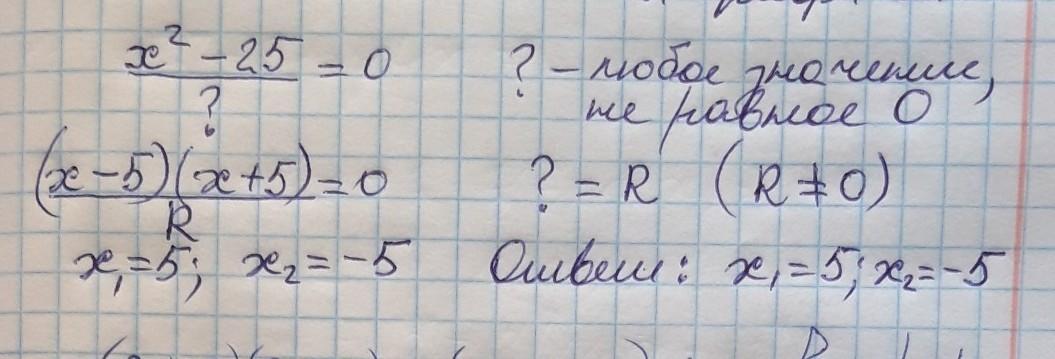 x² - 25 / ? = 0 ? - любое значение,
не равное 0
(x-5)(x+5) / R = 0 ? = R (R ≠ 0)
x₁=5; x₂=-5 Ответ: x₁=5; x₂=-5